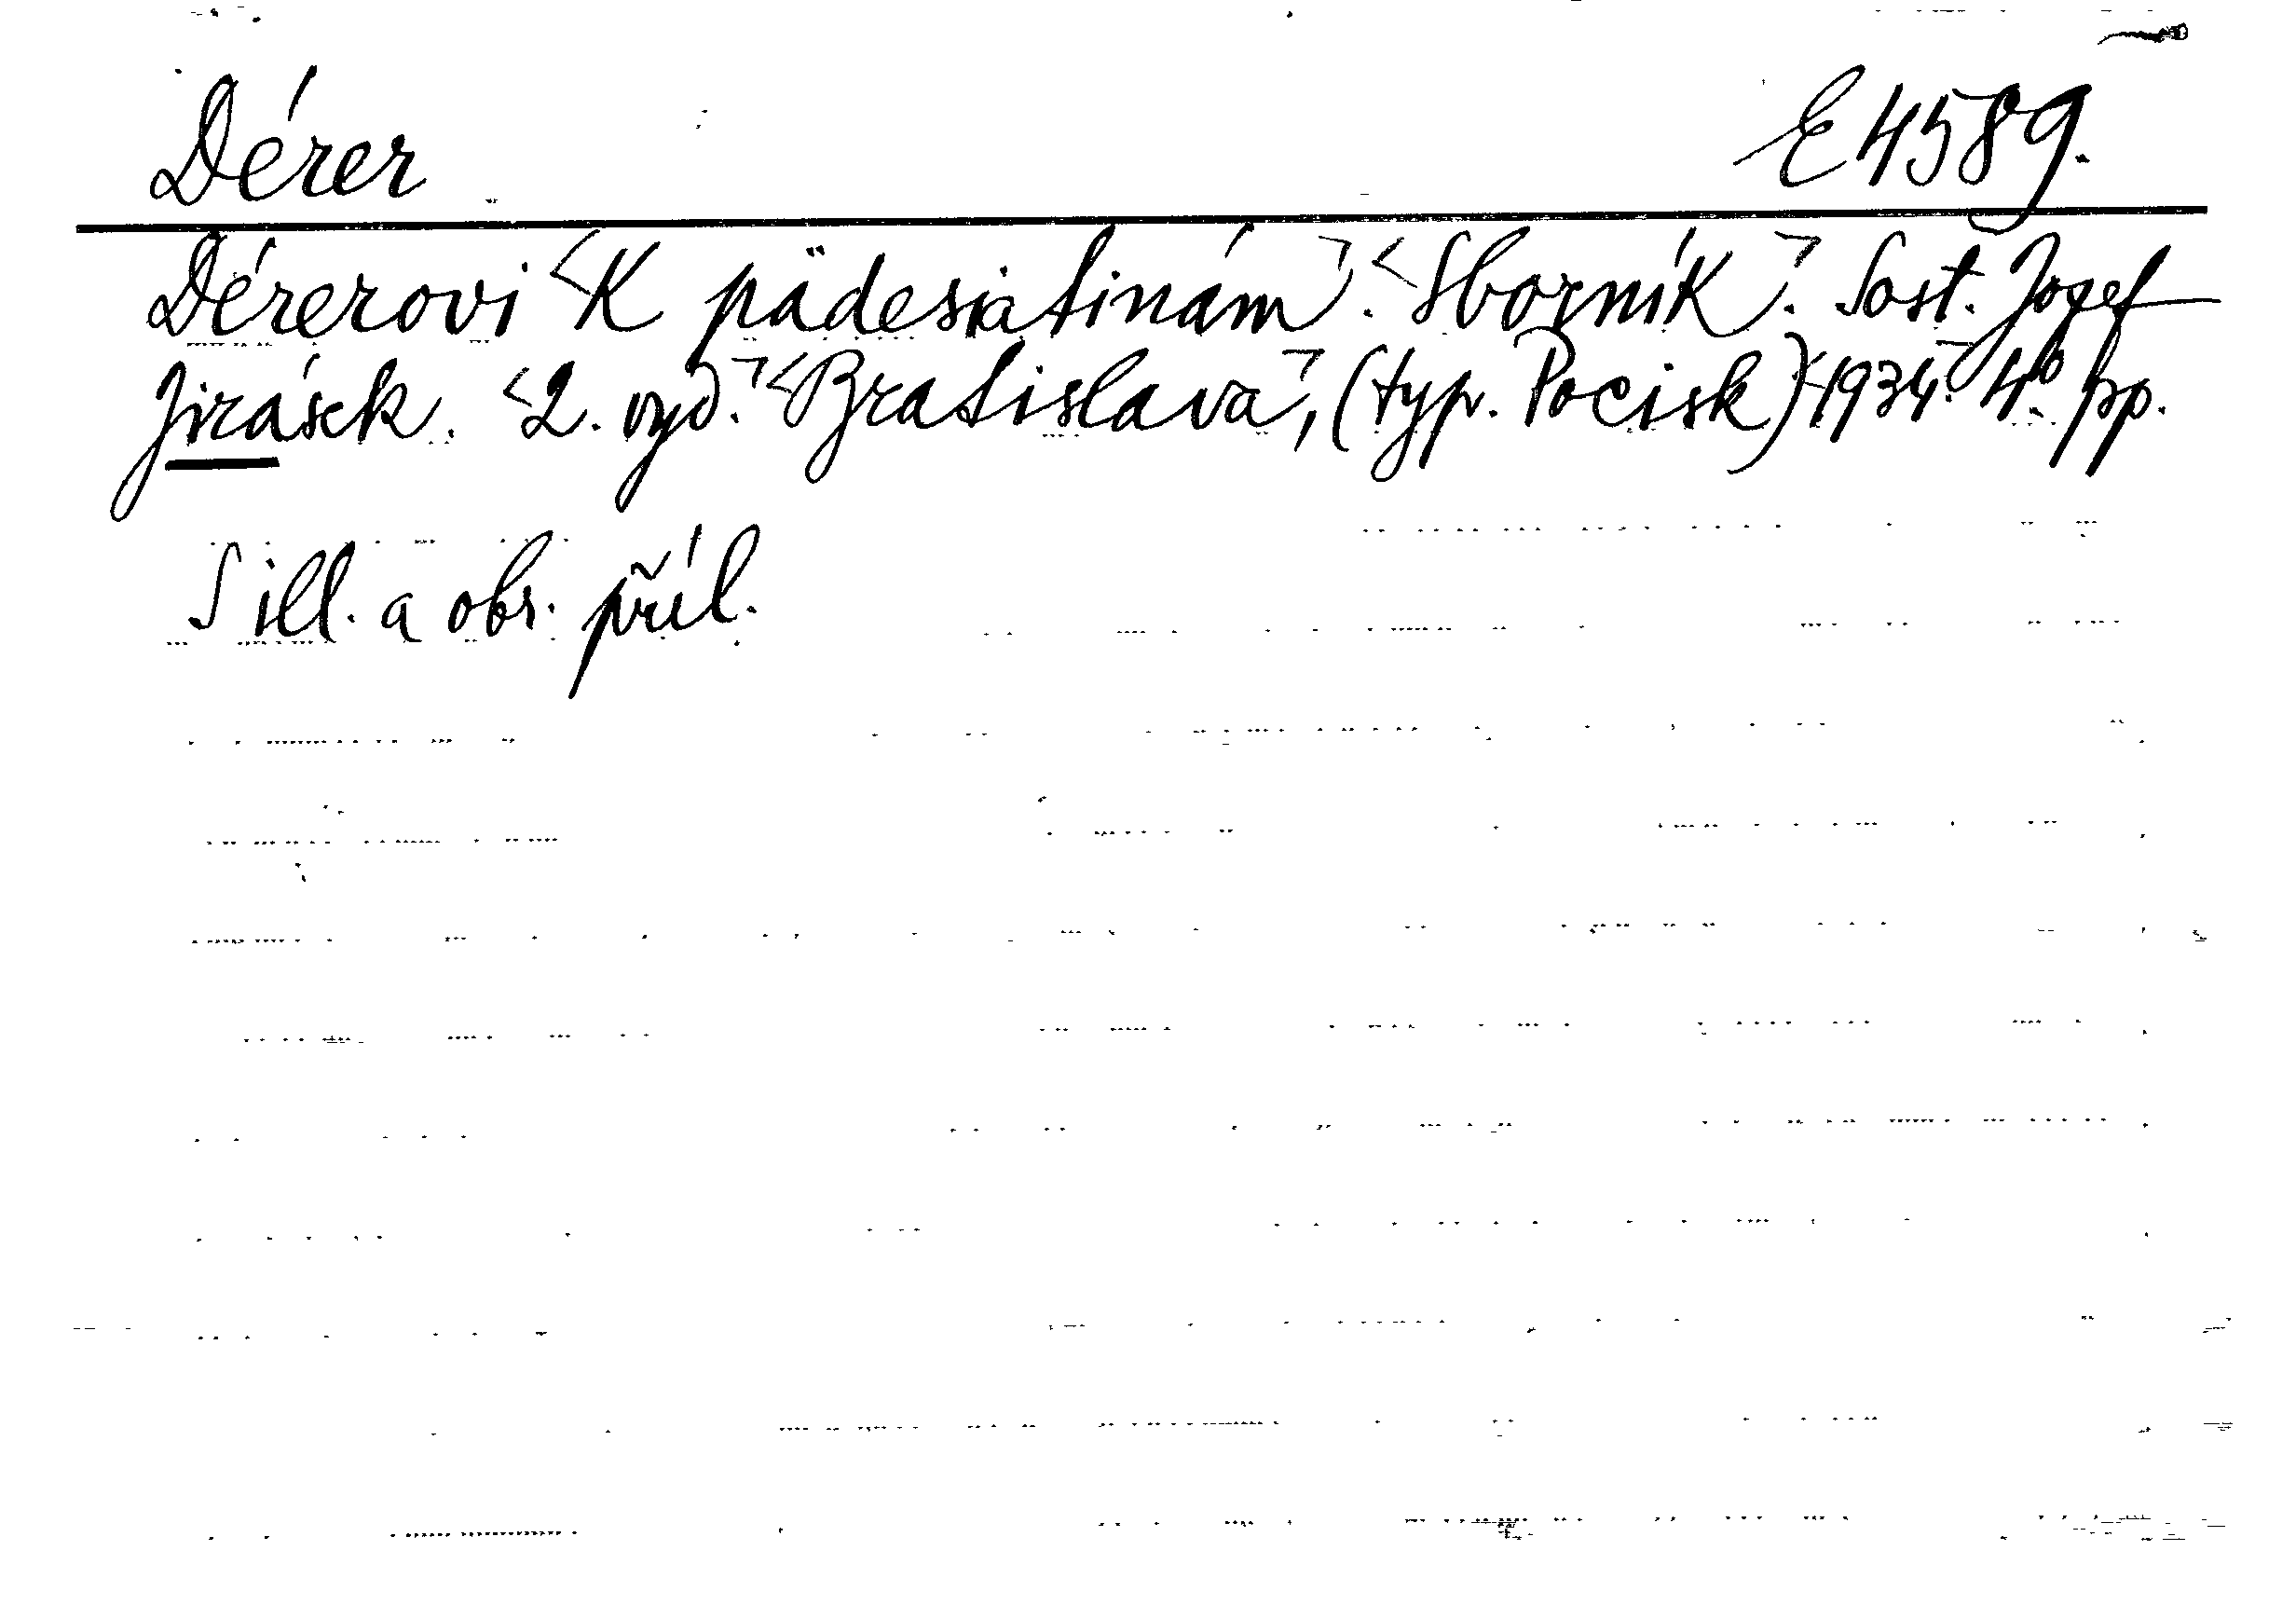 Dérer E 4589.
Dérerovi <K pädesiatinám>. <Sborník>. Sost. Jozef
Jirásek. <2. vyd.> <Bratislava>, (typ. Pocisk) <1934>. 4° pp.
S ill. a obr. příl.